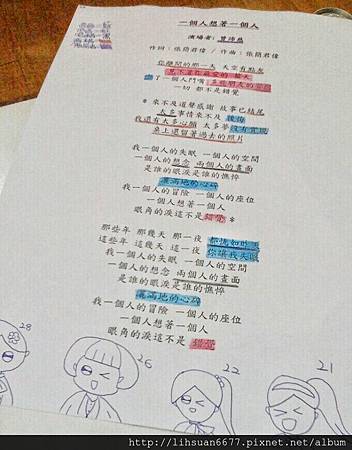 一個人想著一個人
演唱者：曾沛慈
作詞：張簡君偉 / 作曲：張簡君偉
你離開的那一天 天空有點灰
一切 都不是錯覺
*來不及道聲感謝 故事已結尾
太多事情來不及 後悔
我還有太多心願 太多夢
桌上還留著過去的照片
我一個人的失眠 一個人的空間
一個人的想念 兩個人的畫面
是誰的眼淚是誰的憔悴
灑滿地的心碎
我一個人的冒險 一個人的座位
一個人想著一個人
眼角的淚這不是 錯覺*
那些年 那幾天 那一夜 都像如昨天
這些年 這幾天 這一夜 你讓我失眠
我一個人的失眠 一個人的空間
一個人的想念 兩個人的畫面
是誰的眼淚是誰的憔悴
灑滿地的心碎
我一個人的冒險 一個人的座位
一個人想著一個人
眼角的淚這不是 錯覺
28
26
22
21
http://lihsuan6677.pixnet.net/album